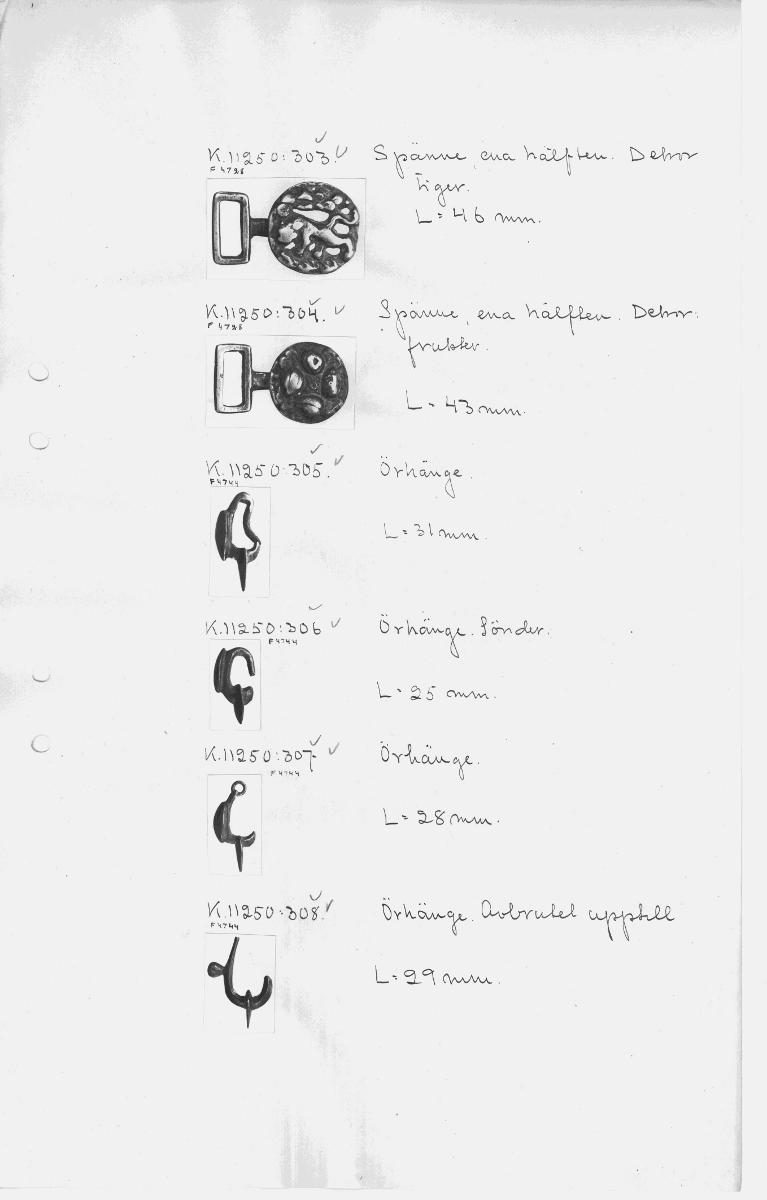 K.11250:303. Spänne, ena hälften. Dekor
F 4728
tiger.
L= 46 mm.
K.11250:304. Spänne, ena hälften. Dekor:
F 4728
frukter.
L= 43 mm.
K.11250:305. Örhänge.
F4744
L= 31 mm.
K.11250:306 Örhänge. Sönder.
F4744
L= 25 mm.
K.11250:307. Örhänge.
F4744
L= 28 mm.
K.11250:308. Örhänge. Avbrutet upptill
F4744
L= 29 mm.